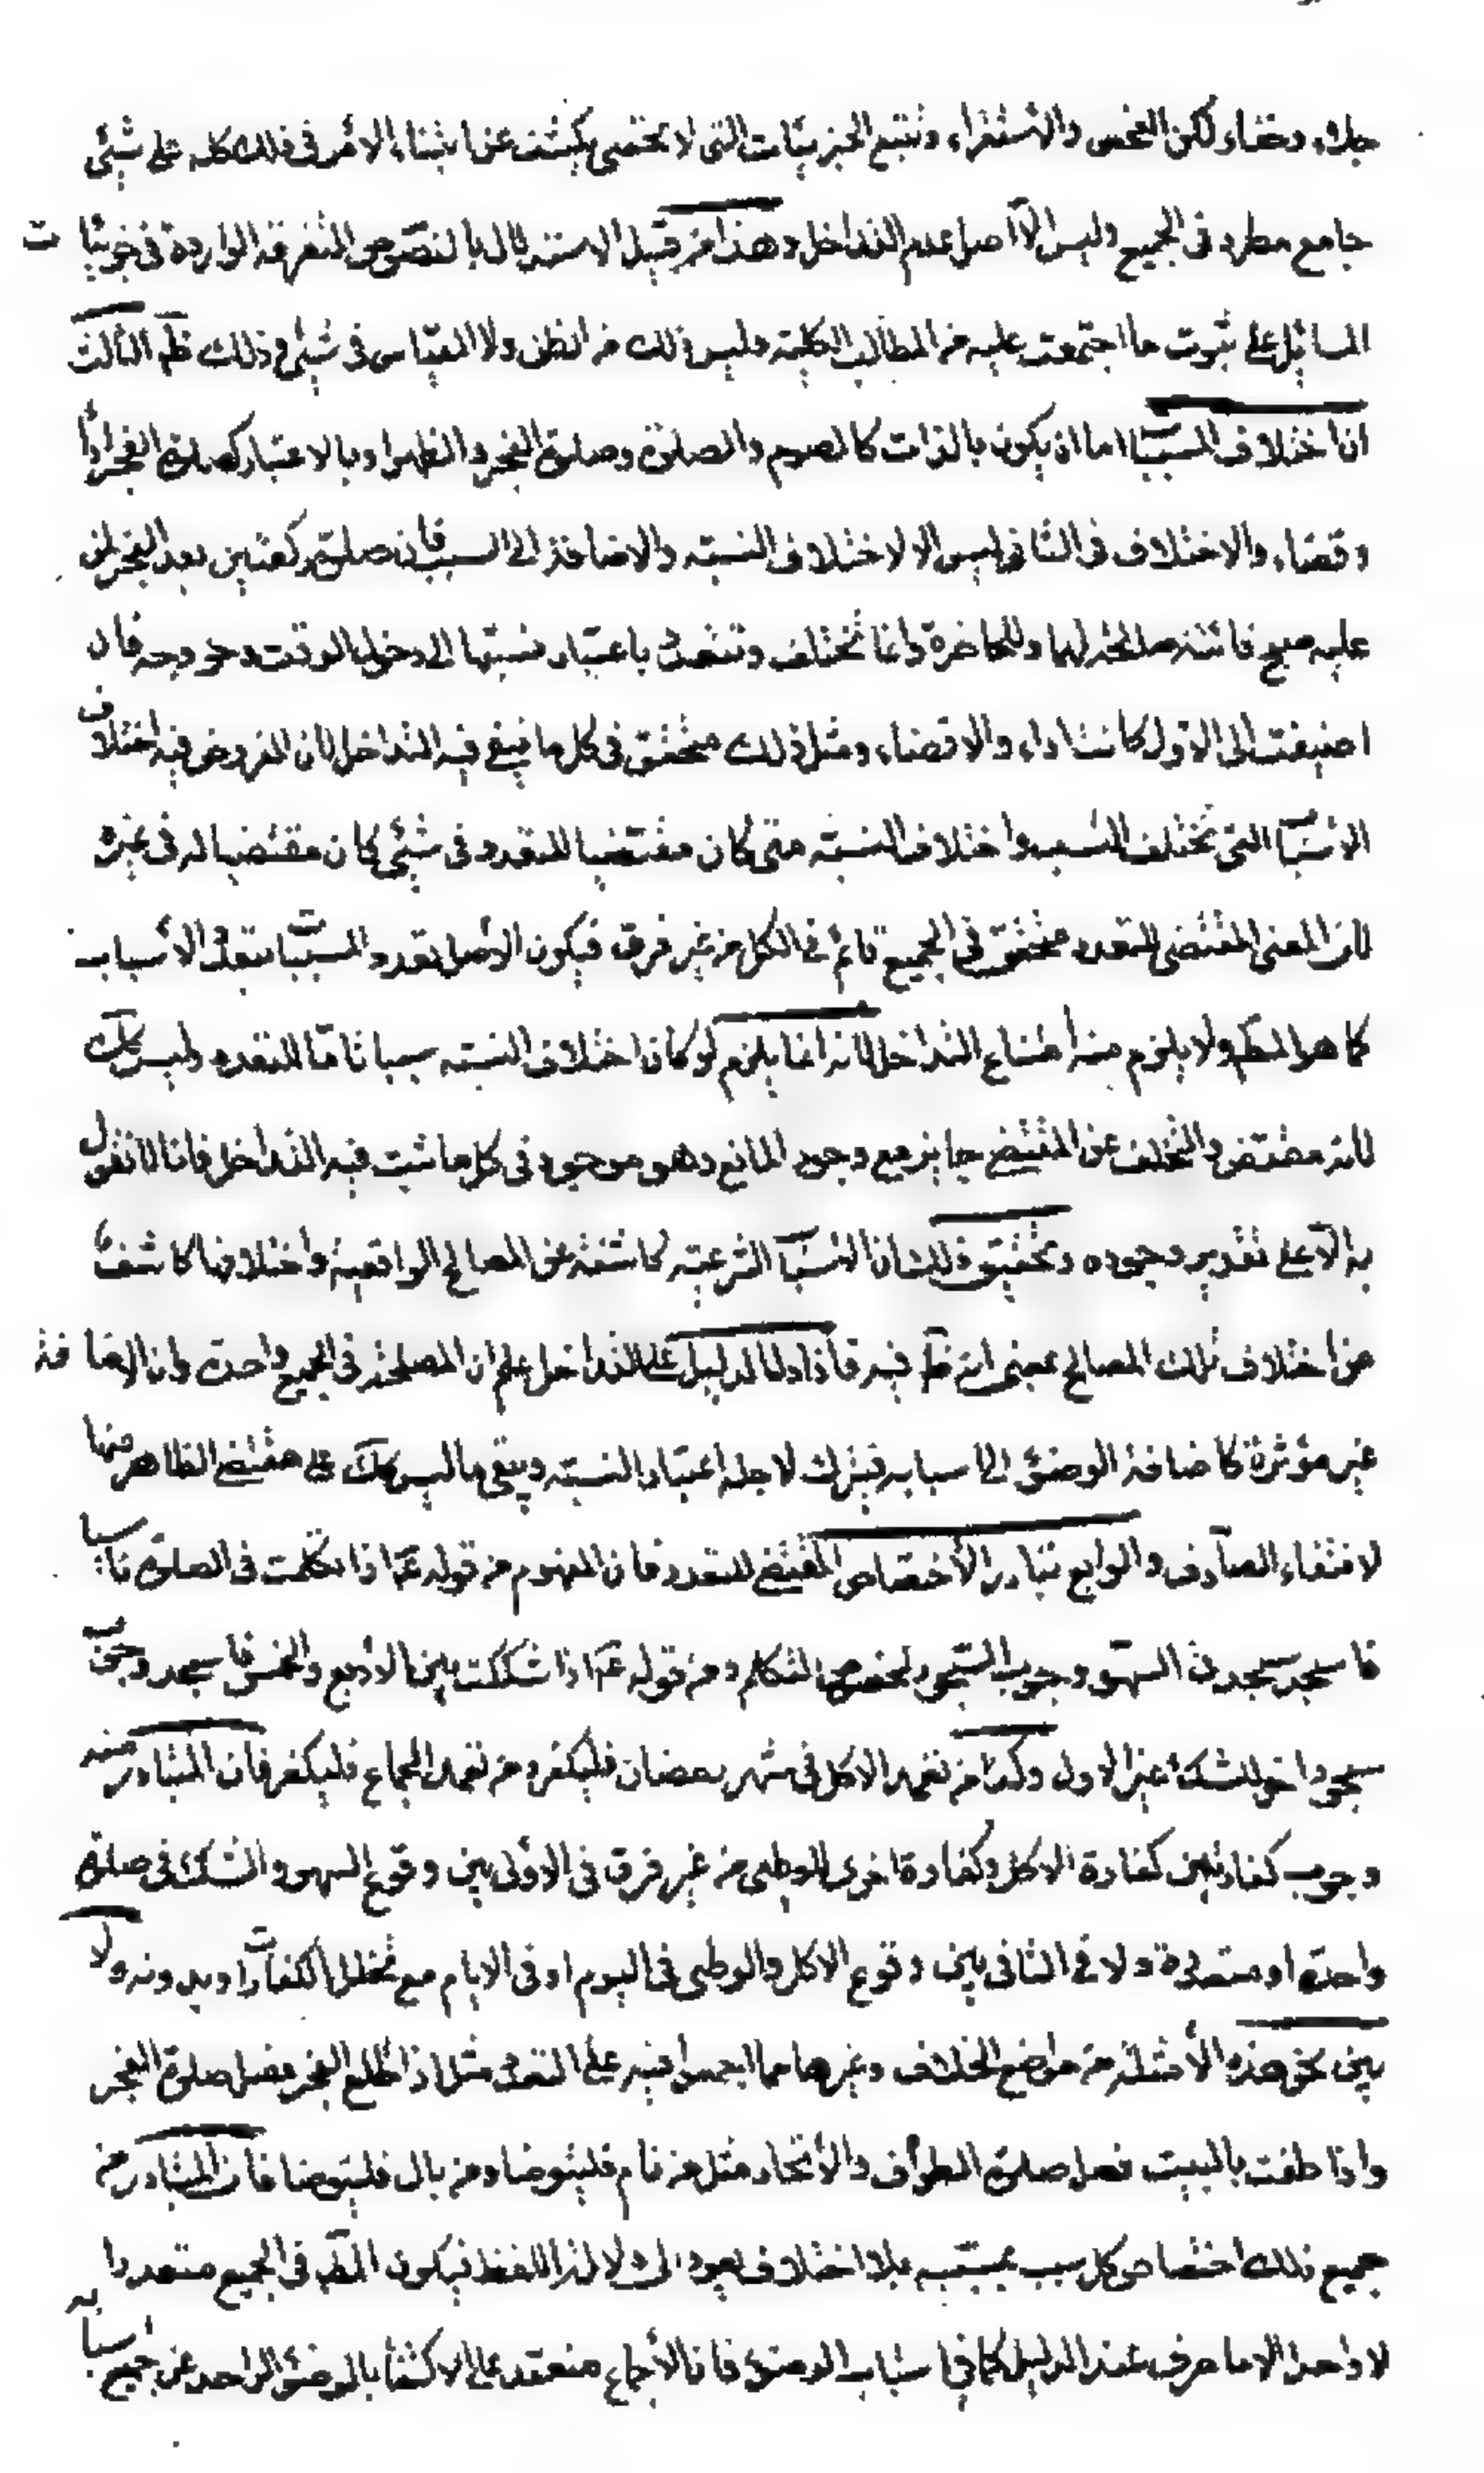 جلاء وخفاء لكن الفحص والاستقراء وتتبع الجزئيات التى لا تحصى يكشف عن ابتناء الامر فى ذلك كله على شيئ
جامع مطرد فى الجميع وليس الا اصل عدم التداخل وهذا من قبيل الاستدلال بالنصوص المتفرقة الواردة فى جزئيات
المسائل على ثبوت ما اجتمعت عليه من المطالب الكلية وليس ذلك من الظن ولا القياس فى شيئ وذلك ظم الثالث
ان اختلاف المسببا اما ان يكون بالذات كالصوم والصلوة وصلوة الفجر والظهر او بالاعتبار كصلوة الفجر اداءً
وقضاء والاختلاف فى الثانى ليس الا لاختلاف النسبة والاضافة الى السبب فان صلوة ركعتين بعد الفجر لمن
عليه صبح فائتة صالحة لها وللحاضرة وانما تختلف وتتعدد باعتبار نسبتها الى دخول الوقت وخروجه فان
اضيفت الى الاول كانت اداء والا قضاء ومثل ذلك متحقق فى كل ما ينبغى فيه التداخل لان المفروض فيه اختلاف
الاسبا التى تختلف النسب واختلاف النسبة متى كان مقتضيا للتعدد فى شيئ كان مقتضيا له فى غيره
لان المعنى المقتضى للتعدد متحقق فى الجميع قائم فى الكل من غير فرق فيكون الاصل تعدد المسببات بتعدد الاسباب
كما هو المط ولا يلزم منه امتناع التداخل لانه انما يلزم لو كان اختلاف النسبة سببا تاما للتعدد وليس كك
لانه مقتض والتخلف عن المقتضى جايز مع وجود المانع وهو موجود فى كل ما ثبت فيه التداخل فانا لا نقول
به الا على تقدير وجوده وتحقيق ذلك ان الاسبا الشرعية كاشفة عن المصالح الواقعية واختلافها كاشف
عن اختلاف تلك المصالح بمعنى انه ظم فيه فاذا دل الدليل على التداخل علم ان المصلحة فى الجميع واحدة وان الاضافة
غير مؤثرة كاضافة الوضوء الى اسبابه فيترك لاجله اعتبار النسبة ويبقى ما ليس كك على مقتضى الظاهر فيها
لانتفاء الصارف والرابع تبادر الاختصاص المقتضى للتعدد فان المفهوم من قوله ع اذا تكلمت فى الصلوة ناسيا
فاسجد سجدتى السهو وجوب السجود لخصوص التكلم ومن قوله ع اذا شككت بين الاربع والخمس فاسجد وجوب
سجود اخر للشك غير الاول وكذا من تعمد الاكل فى شهر رمضان فليكفر ومن تعمد الجماع فليكفر فان المتبادر منه
وجوب كفارتين كفارة الاكل وكفارة اخرى للوطى من غير فرق فى الاولى بين وقوع السهو والشك فى صلوة
واحدة او متعددة ولا فى الثانى بين وقوع الاكل والوطى فى اليوم او فى الايام مع تخلل الكفارات او بدونه ولا
بين نحو هذه الامثلة من مواضع الخلاف وغيرها مما اجمعوا فيه على التعدد مثل اذا طلع الفجر فصل صلوة الفجر
واذا طفت بالبيت فصل صلوة الطواف والاتحاد مثل من نام فليتوضا ومن بال فليتوضا فان المتبادر من
جميع ذلك اختصاص كل سبب بمسببه بلا اختلاف يعود الى دلالة اللفظ فيكون المط فى الجميع متعددا
لا واحدا الا ما صرف عنه الدليل كما فى اسباب الوضوء فان الاجماع منعقد على الاكتفا بالوضوء الواحد عن جميع اسبابه